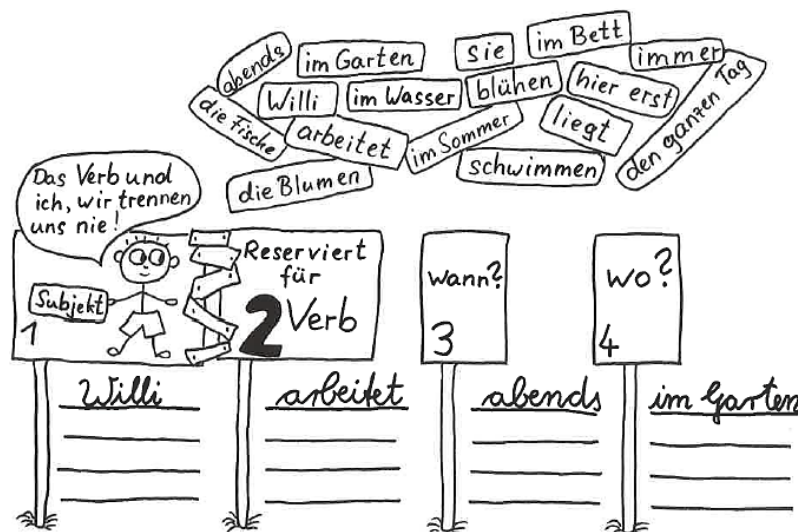 abends
im Garten
sie
im Bett
immer
die Fische
Willi
im Wasser
blühen
hier erst
den ganzen Tag
arbeitet
im Sommer
liegt
die Blumen
schwimmen
Das Verb und
ich, wir trennen
uns nie!
Subjekt
1
Reserviert
für
2 Verb
wann?
3
wo?
4
Willi arbeitet abends im Garten